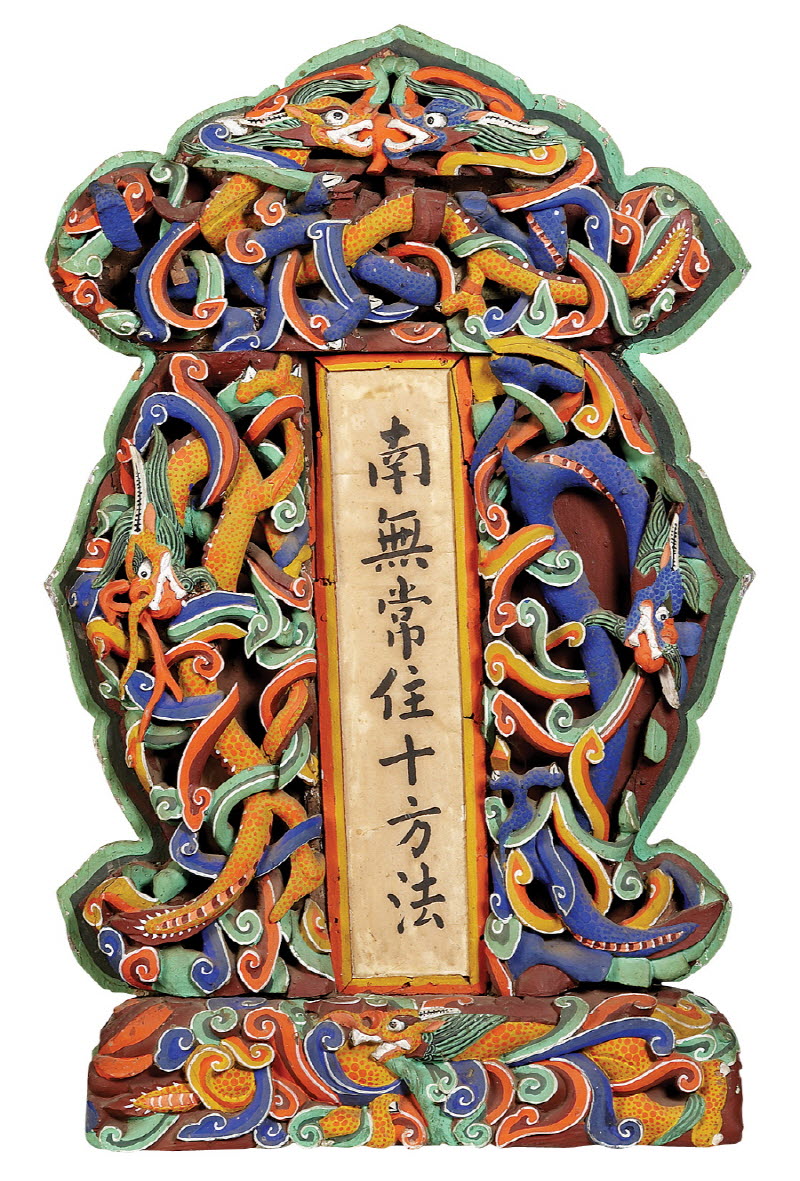 南無常住十方法